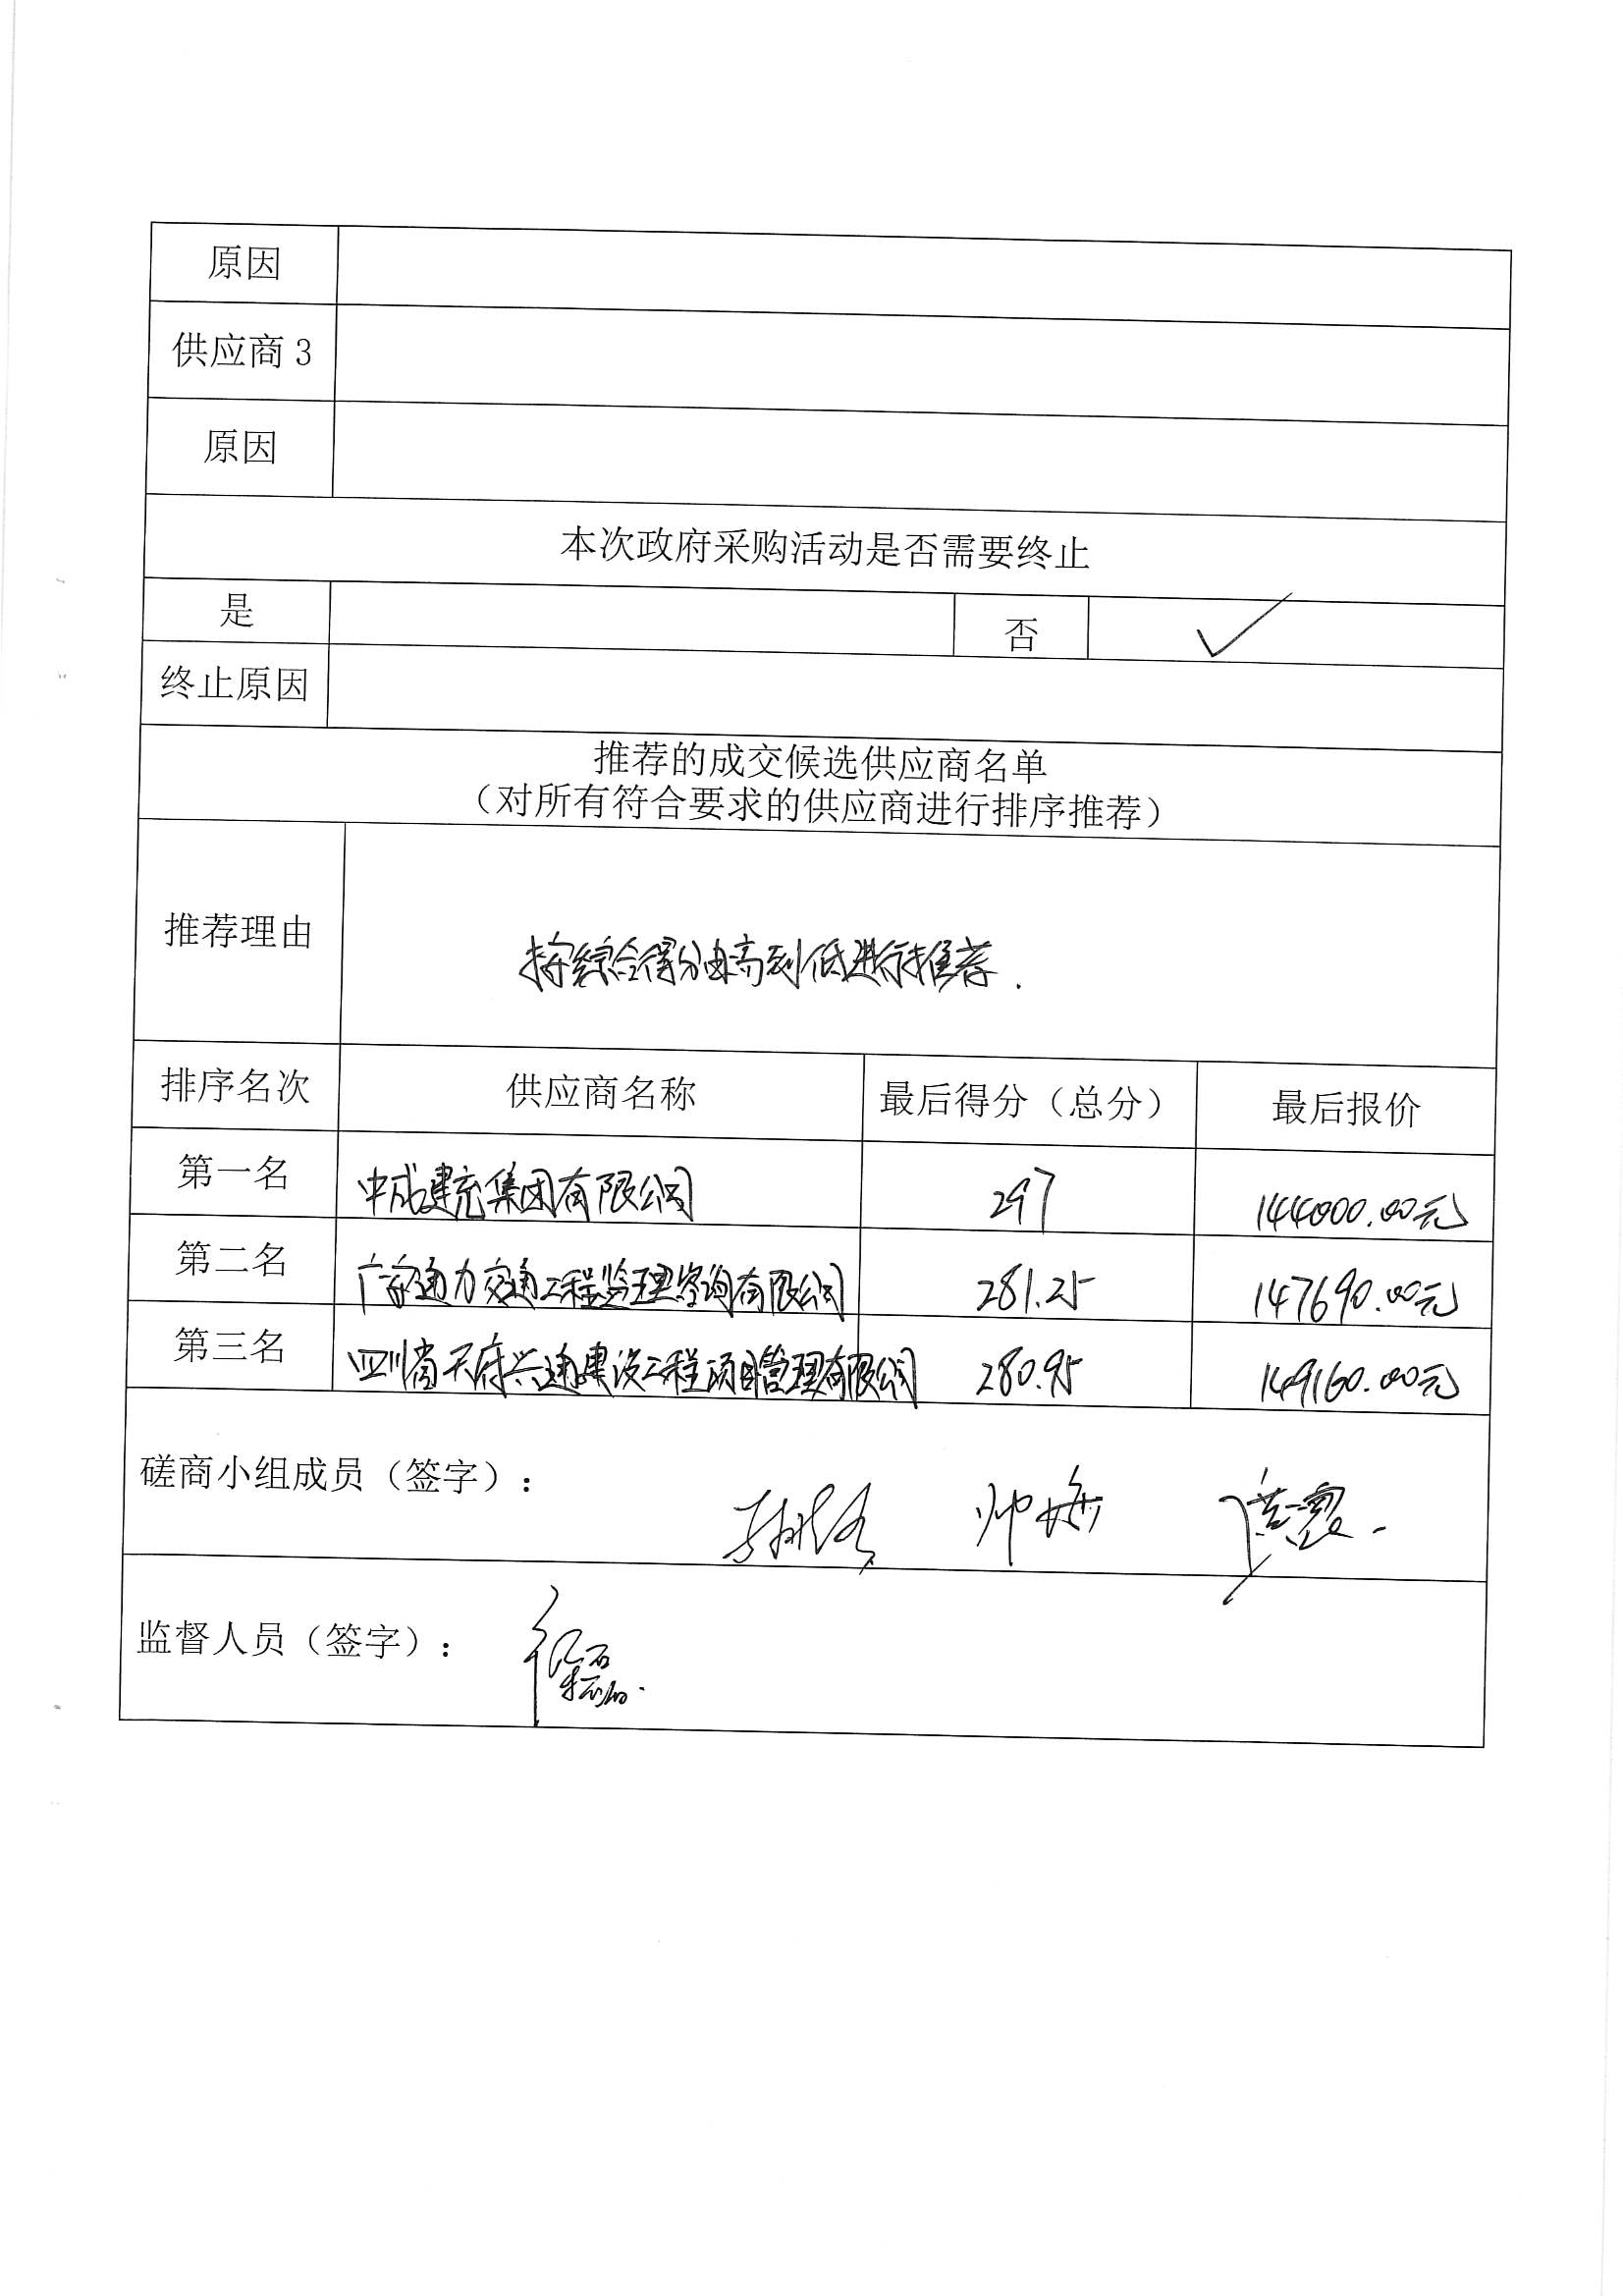 原因
供应商3
原因
本次政府采购活动是否需要终止
是 否 ✓
终止原因
推荐的成交候选供应商名单
（对所有符合要求的供应商进行排序推荐）
推荐理由 按综合得分由高到低进行推荐.
排序名次 供应商名称 最后得分（总分） 最后报价
第一名 中成建充集团有限公司 297 144000.00元
第二名 广东通力交通工程监理咨询有限公司 281.25 147690.00元
第三名 四川省天府兴通建设工程项目管理有限公司 280.95 149160.00元
磋商小组成员（签字）：
监督人员（签字）：